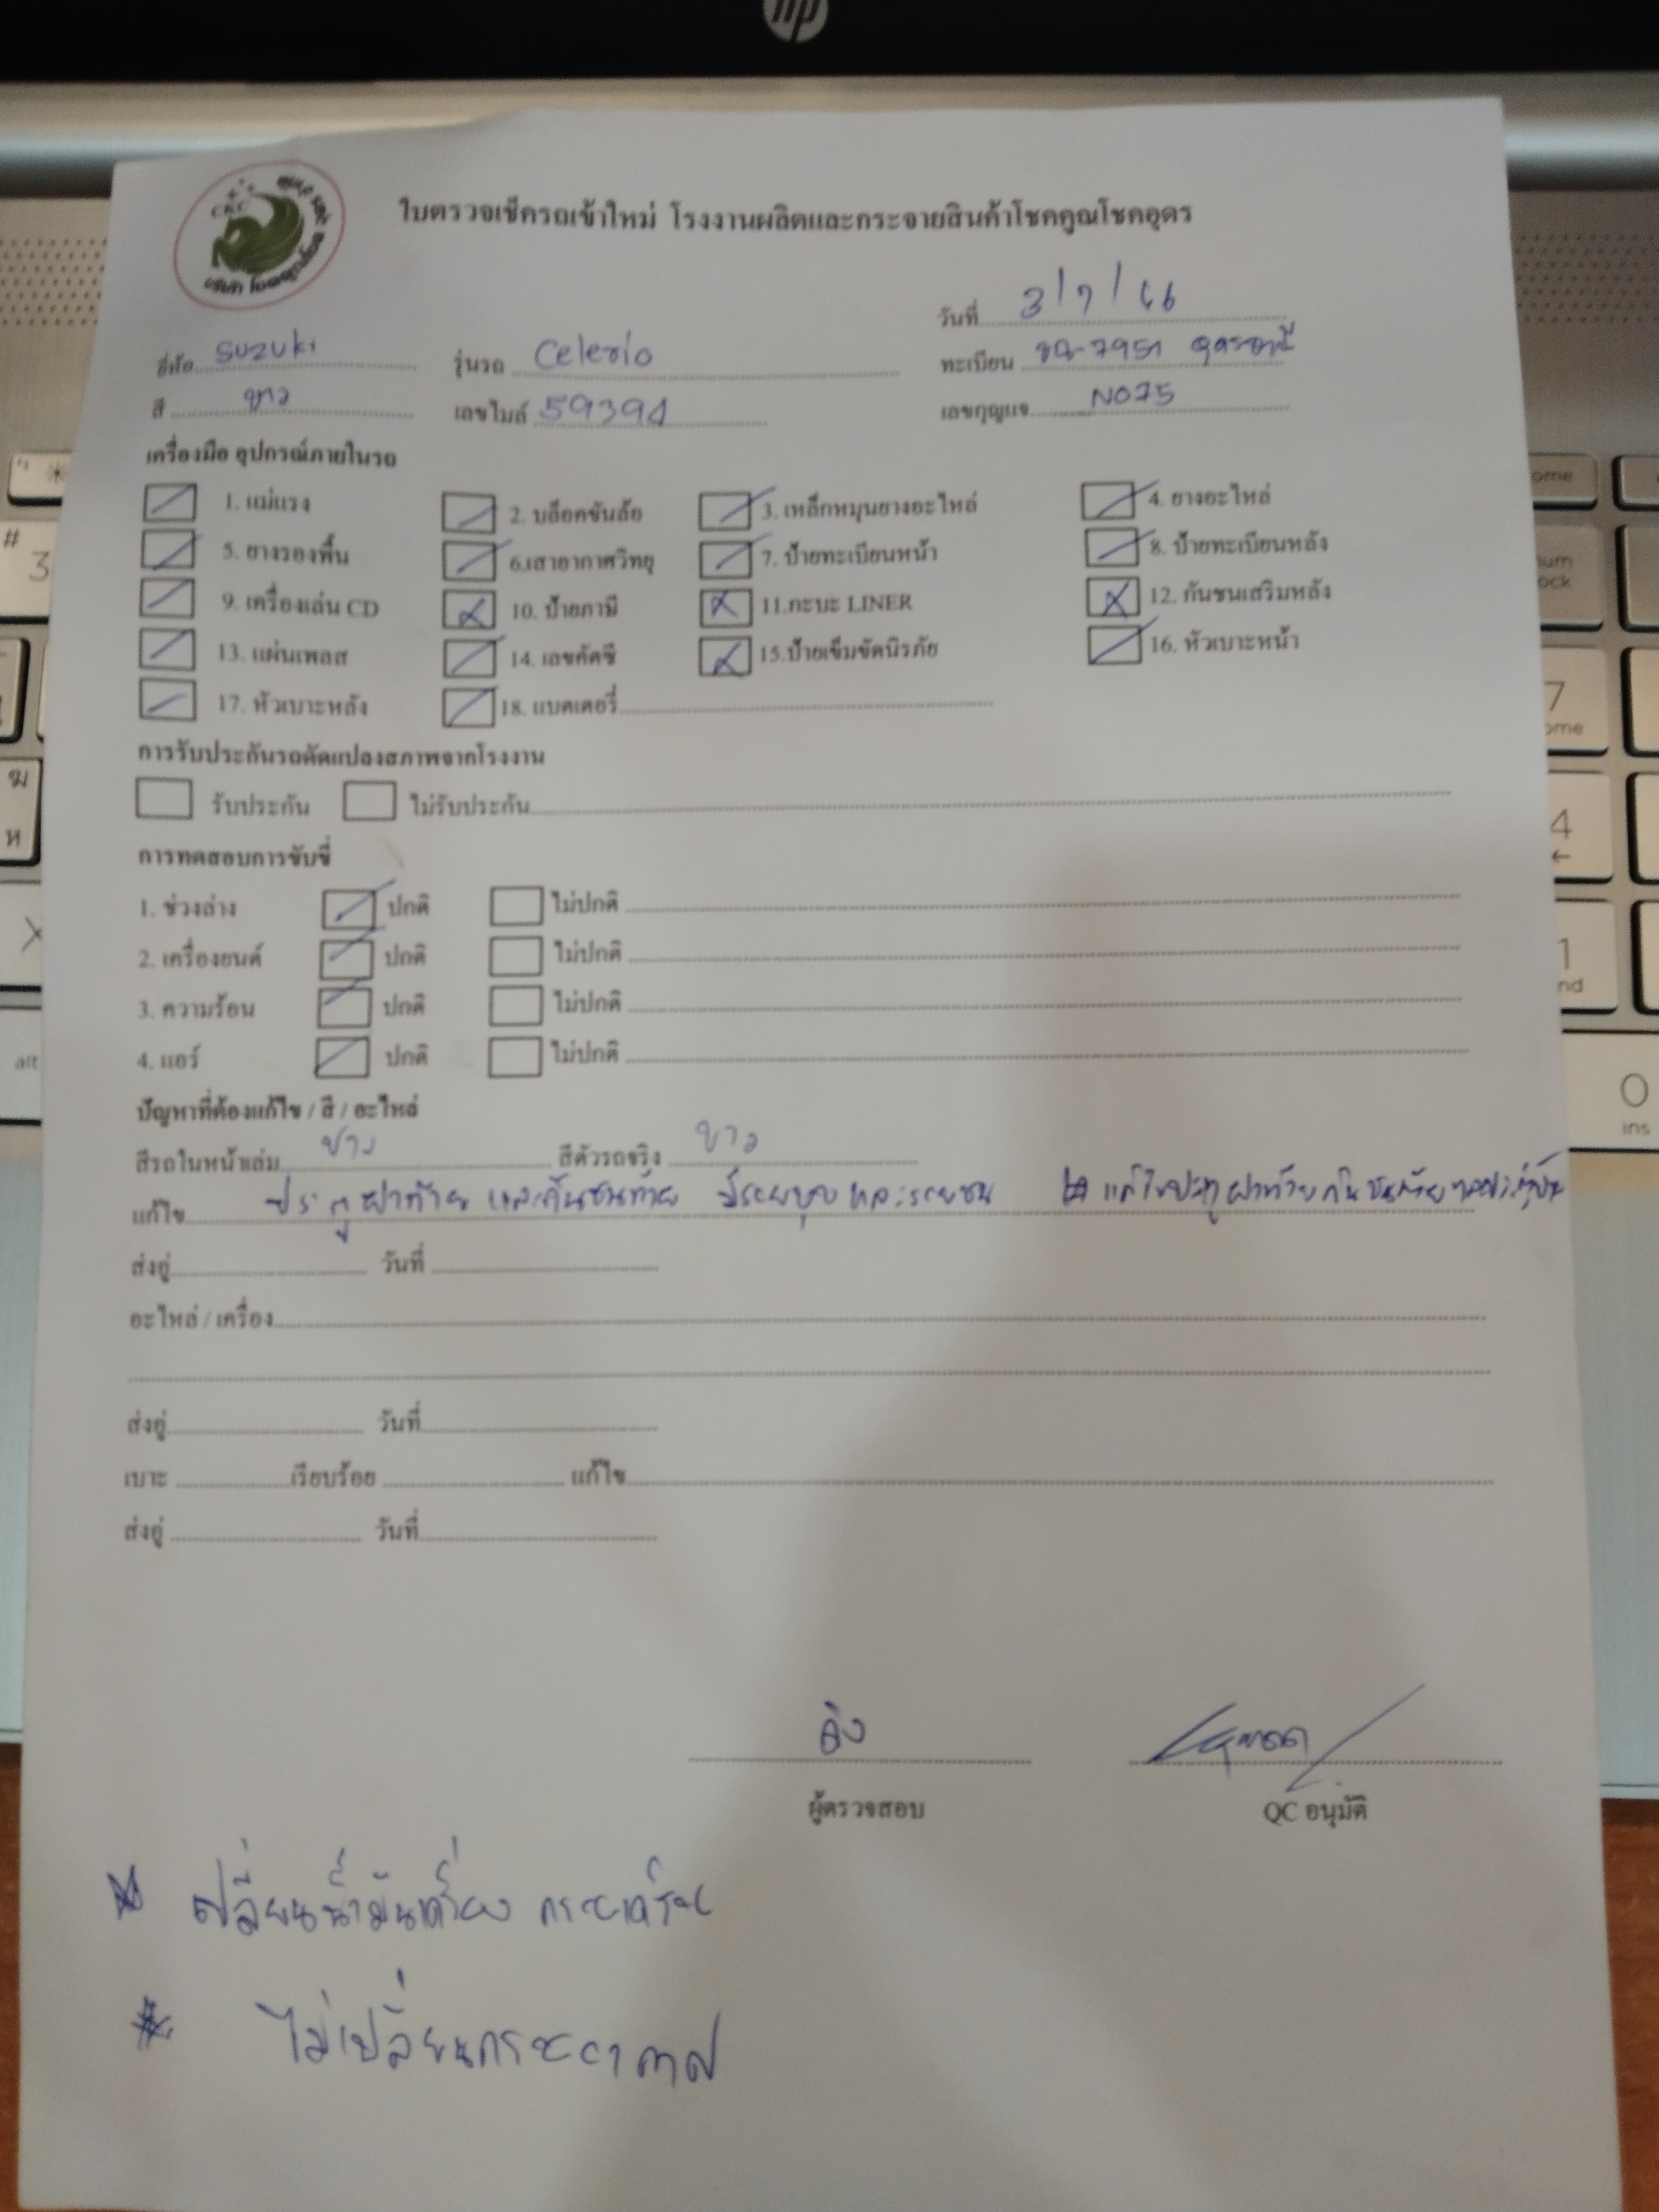 CKC
ใบตรวจเช็ครถเข้าใหม่ โรงงานผลิตและกระจายสินค้าโชคคูณโชคอุดร
วันที่ 3/7/66
ยี่ห้อ suzuki รุ่นรถ Celerio ทะเบียน 7951 อุดรธานี
สี ขาว เลขไมล์ 59394 เลขกุญแจ NO75
เครื่องมือ อุปกรณ์ภายในรถ
1. แม่แรง 2. บล็อคขันล้อ 3. เหล็กหมุนยางอะไหล่ 4. ยางอะไหล่
5. ยางรองพื้น 6.เสาอากาศวิทยุ 7. ป้ายทะเบียนหน้า 8. ป้ายทะเบียนหลัง
9. เครื่องเล่น CD 10. ป้ายภาษี 11.กะบะ LINER 12. กันชนเสริมหลัง
13. แผ่นเพลส 14. เลขคัดซี 15.ป้ายเข็มขัดนิรภัย 16. หัวเบาะหน้า
17. หัวเบาะหลัง 18. แบตเตอรี่
การรับประกันรถดัดแปลงสภาพจากโรงงาน
รับประกัน ไม่รับประกัน
การทดสอบการขับขี่
1. ช่วงล่าง ปกติ ไม่ปกติ
2. เครื่องยนต์ ปกติ ไม่ปกติ
3. ความร้อน ปกติ ไม่ปกติ
4. แอร์ ปกติ ไม่ปกติ
ปัญหาที่ต้องแก้ไข / สี / อะไหล่
สีรถในหน้าเล่ม ขาว สีตัวรถจริง ขาว
แก้ไข ประตูฝาท้าย และกันชนท้าย มีรอยบุบและรอยชน แก้ไขประตูฝาท้าย กันชนท้าย
ส่งอู่ วันที่
อะไหล่ / เครื่อง
ส่งอู่ วันที่
เบาะ เรียบร้อย แก้ไข
ส่งอู่ วันที่
ผู้ตรวจสอบ QC อนุมัติ
* เปลี่ยนน้ำมันเครื่อง
* ไม่เปลี่ยนกรองอากาศ
hp